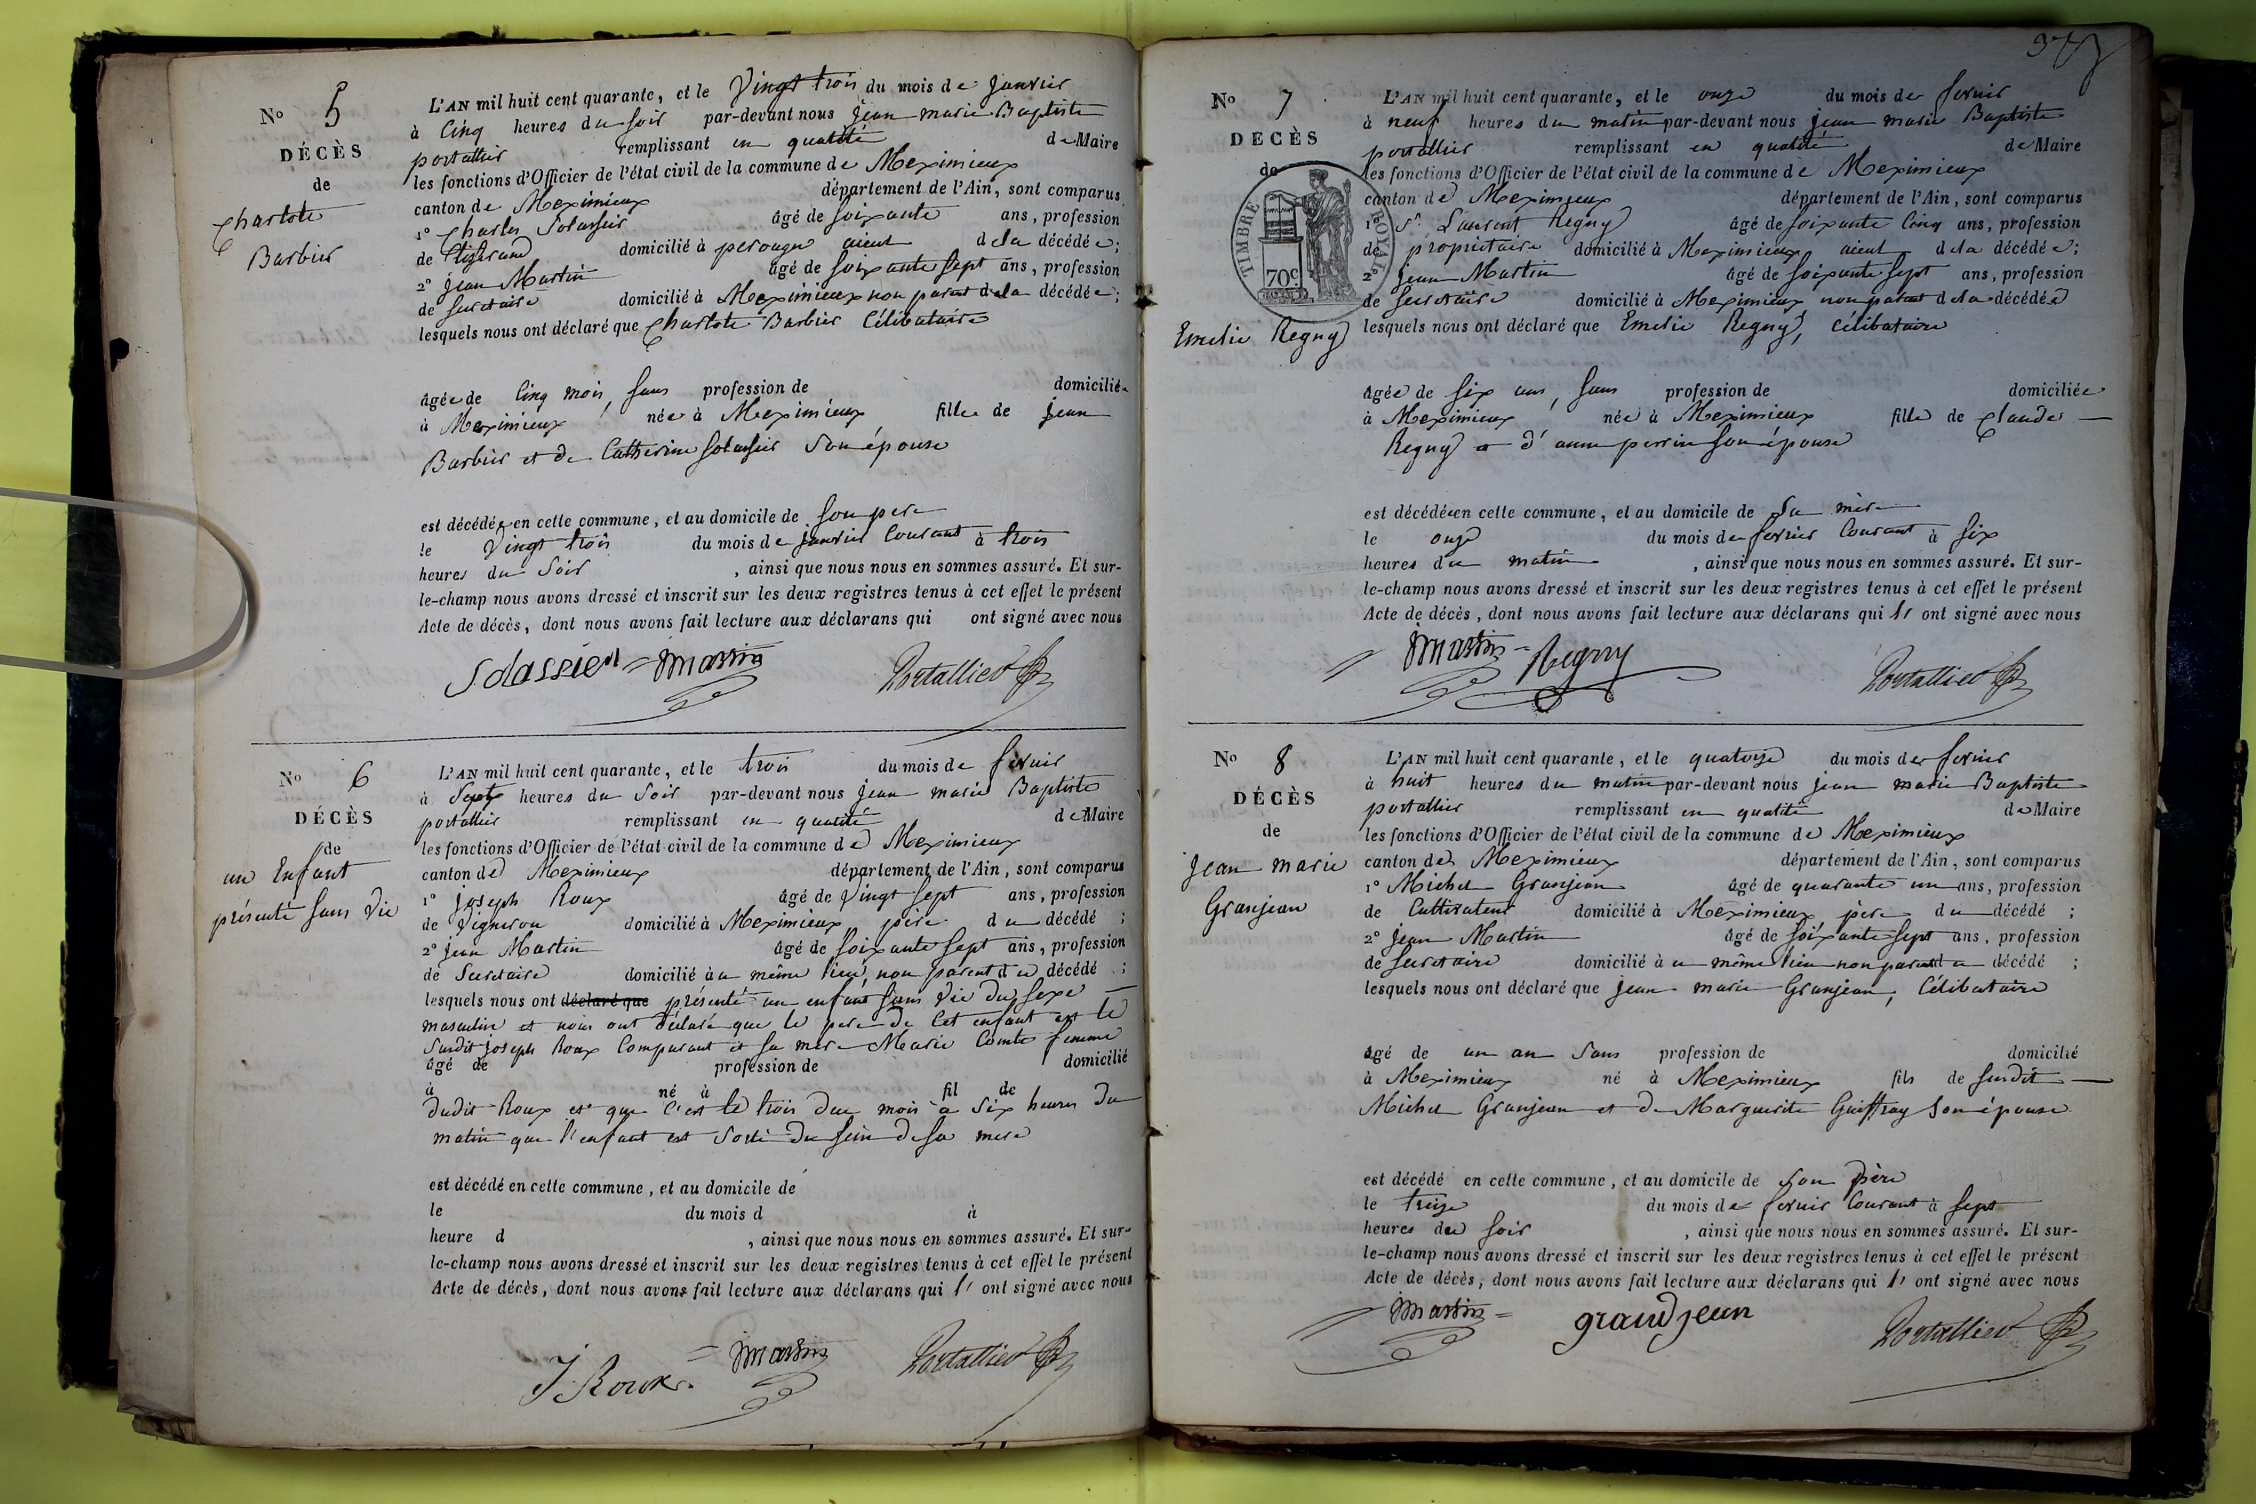 No 5
DÉCÈS
de
Charlote
Barbier
L'AN mil huit cent quarante, et le Vingt trois du mois de janvier
à Cinq heures du soir par-devant nous jean marie Baptiste
portallier remplissant en qualité de Maire
les fonctions d'Officier de l'état civil de la commune de Meximieux
canton de Meximieux département de l'Ain, sont comparus
1° Charles Solassier âgé de soixante ans, profession
de tisserand domicilié à perouges aieul de la décédée;
2° jean Martin âgé de soixante sept ans, profession
de secretaire domicilié à Meximieux non parent de la décédée;
lesquels nous ont déclaré que Charlote Barbier Célibataire
âgée de Cinq mois, sans profession de domiciliée
à Meximieux née à Meximieux fille de jean
Barbier et de Catherine Solassier Son épouse
est décédée en cette commune, et au domicile de son pere
le Vingt trois du mois de janvier Courant à trois
heures du Soir, ainsi que nous nous en sommes assuré. Et sur-
le-champ nous avons dressé et inscrit sur les deux registres tenus à cet effet le présent
Acte de décès, dont nous avons fait lecture aux déclarans qui ont signé avec nous
Solassier jmartin Portallier
No 6
DÉCÈS
de
un Enfant
présenté sans Vie
L'AN mil huit cent quarante, et le trois du mois de fevrier
à Sept heures du Soir par-devant nous jean marie Baptiste
portallier remplissant en qualité de Maire
les fonctions d'Officier de l'état civil de la commune de Meximieux
canton de Meximieux département de l'Ain, sont comparus
1° joseph Roux âgé de Vingt sept ans, profession
de Vigneron domicilié à Meximieux père du décédé;
2° jean Martin âgé de soixante sept ans, profession
de Secretaire domicilié à u même lieu, non parent du décédé;
lesquels nous ont déclaré que présenté un enfant sans Vie du sexe
masculin et nous ont déclaré que le pere de Cet enfant est le
Susdit joseph Roux Comparant et sa mere Marie Comte femme
âgé de profession de domicilié
à né à fil de
dudit Roux et que C'est le trois du mois à Six heures du
matin que l'enfant est Sorti du sein de sa mere
est décédé en cette commune, et au domicile de
le du mois d à
heure d , ainsi que nous nous en sommes assuré. Et sur-
le-champ nous avons dressé et inscrit sur les deux registres tenus à cet effet le présent
Acte de décès, dont nous avons fait lecture aux déclarans qui l' ont signé avec nous
J Roux jmartin Portallier
No 7
DECÈS
de
TIMBRE ROYAL
70 c.
Emelie Regny
L'AN mil huit cent quarante, et le onze du mois de fevrier
à neuf heures du matin par-devant nous jean marie Baptiste
portallier remplissant en qualité de Maire
les fonctions d'Officier de l'état civil de la commune de Meximieux
canton de Meximieux département de l'Ain, sont comparus
1° Sr. Laurent Regny âgé de soixante Cinq ans, profession
de propriétaire domicilié à Meximieux aieul de la décédée;
2° jean Martin âgé de soixante sept ans, profession
de secretaire domicilié à Meximieux non parent de la décédée
lesquels nous ont déclaré que Emelie Regny, célibataire
âgée de six ans, sans profession de domiciliée
à Meximieux née à Meximieux fille de Claude
Regny et d'anne perrin son épouse
est décédée en cette commune, et au domicile de Sa mère
le onze du mois de fevrier Courant à six
heures du matin, ainsi que nous nous en sommes assuré. Et sur-
le-champ nous avons dressé et inscrit sur les deux registres tenus à cet effet le présent
Acte de décès, dont nous avons fait lecture aux déclarans qui l' ont signé avec nous
jmartin Regny Portallier
No 8
DÉCÈS
de
jean marie
Granjean
L'AN mil huit cent quarante, et le quatorze du mois de fevrier
à huit heures du matin par-devant nous jean marie Baptiste
portallier remplissant en qualité de Maire
les fonctions d'Officier de l'état civil de la commune de Meximieux
canton de Meximieux département de l'Ain, sont comparus
1° Michel Granjean âgé de quarante un ans, profession
de Cultivateur domicilié à Meximieux, père du décédé;
2° jean Martin âgé de soixante sept ans, profession
de secretaire domicilié à u même lieu non parent du décédé;
lesquels nous ont déclaré que jean marie Granjean, Célibataire
âgé de un an Sans profession de domicilié
à Meximieux né à Meximieux fils de susdit
Michel Granjean et de Marguerite Guiffray Son épouse
est décédé en cette commune, et au domicile de son père
le treize du mois de fevrier Courant à sept
heures du soir, ainsi que nous nous en sommes assuré. Et sur-
le-champ nous avons dressé et inscrit sur les deux registres tenus à cet effet le présent
Acte de décès, dont nous avons fait lecture aux déclarans qui l' ont signé avec nous
jmartin grandjean Portallier